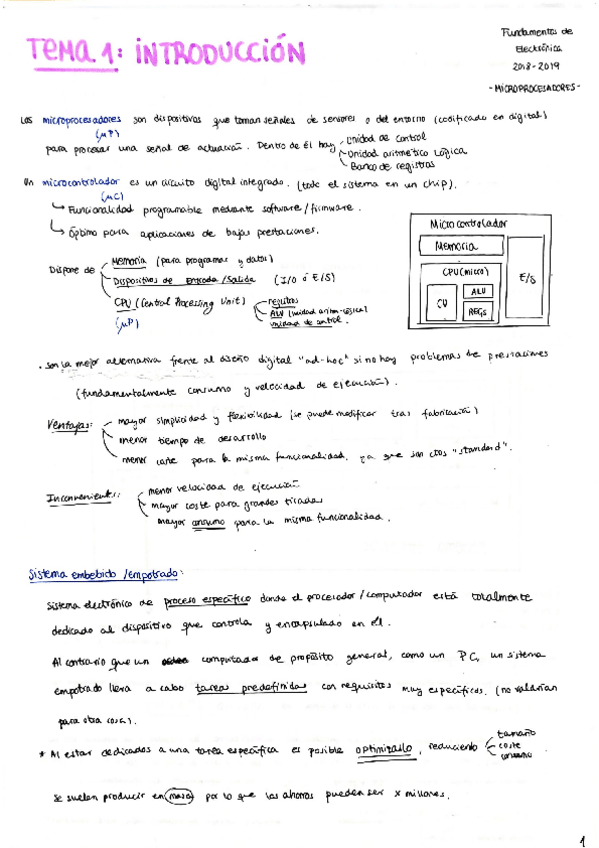 TEMA 1: INTRODUCCIÓN
Fundamentos de
Electrónica
2018-2019
- MICROPROCESADORES -
Los microprocesadores son dispositivos que toman señales de sensores o del entorno (codificado en digital)
(μP)
para procesar una señal de actuación. Dentro de él hay
Unidad de control
Unidad aritmético lógica
Banco de registros
Un microcontrolador es un circuito digital integrado. (todo el sistema en un chip).
(μC)
↳ Funcionalidad programable mediante software/firmware.
↳ Óptimo para aplicaciones de bajas prestaciones.
Dispone de
Memoria (para programas y datos)
Dispositivos de Entrada/Salida (I/O ó E/S)
CPU (Central Processing Unit)
(μP)
registros
ALU (unidad aritm-lógica)
unidad de control.
Microcontrolador
Memoria
CPU (micro)
CU
ALU
REGs
E/S
. Son la mejor alternativa frente al diseño digital "ad-hoc" si no hay problemas de prestaciones
(fundamentalmente consumo y velocidad de ejecución).
Ventajas:
mayor simplicidad y flexibilidad (se puede modificar tras fabricación)
menor tiempo de desarrollo
menor coste para la misma funcionalidad, ya que son ctos "standard".
Inconvenientes:
menor velocidad de ejecución
mayor coste para grandes tiradas
mayor consumo para la misma funcionalidad.
Sistema embebido /empotrado:
Sistema electrónico de proceso específico donde el procesador/computador está totalmente
dedicado al dispositivo que controla y encapsulado en él.
Al contrario que un computador de propósito general, como un PC, un sistema
empotrado lleva a cabo tareas predefinidas con requisitos muy específicos. (no valdrían
para otra cosa).
* Al estar dedicados a una tarea específica es posible optimizarlo, reduciendo
tamaño
coste
consumo
Se suelen producir en masa por lo que los ahorros pueden ser x millones.
1